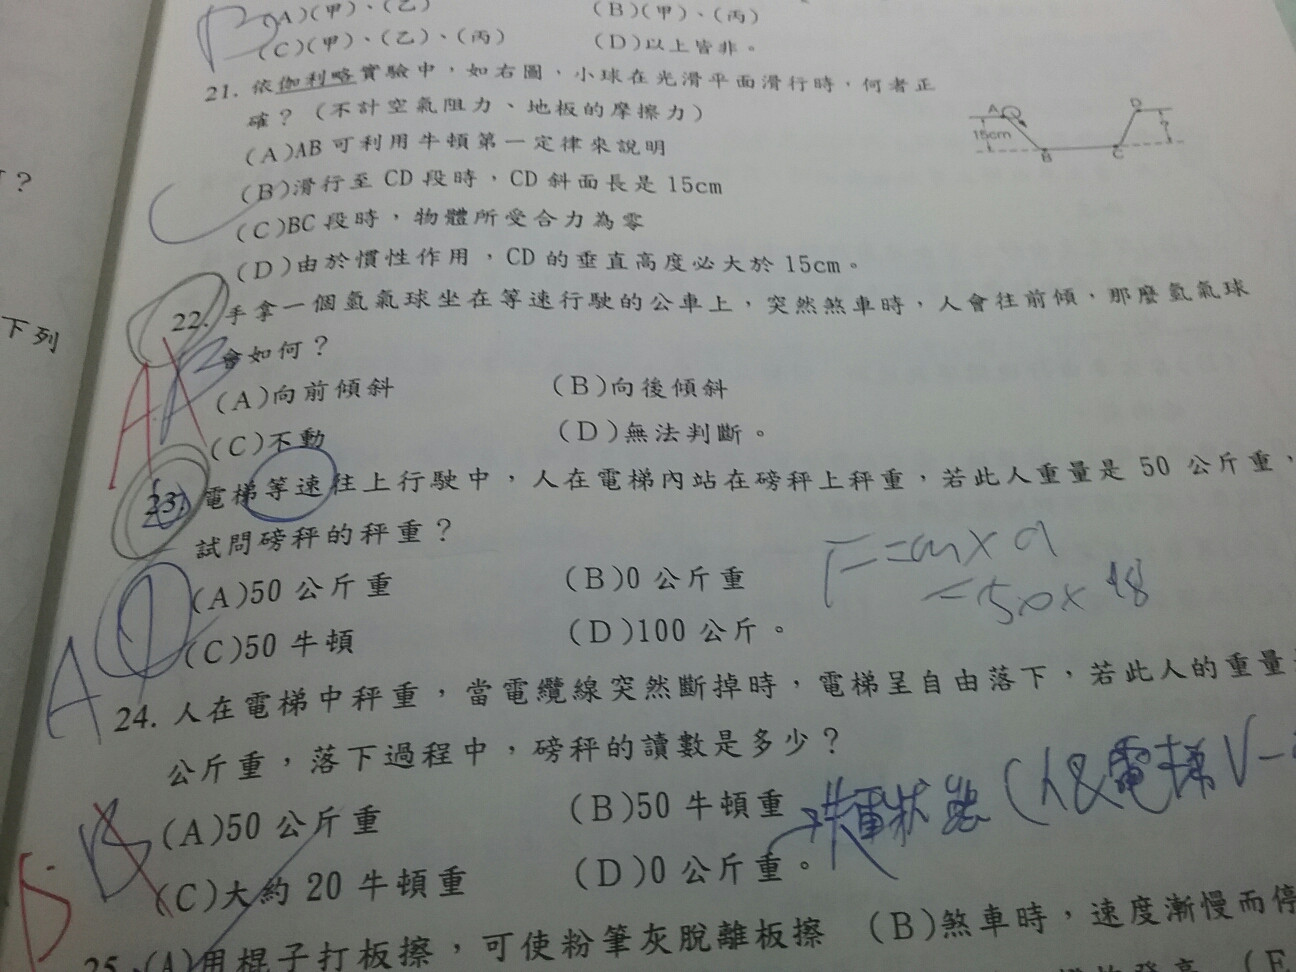 (A)(甲)、(乙)
(B)(甲)、(丙)
(C)(甲)、(乙)、(丙)
(D)以上皆非。
21. 依伽利略實驗中，如右圖，小球在光滑平面滑行時，何者正
確？（不計空氣阻力、地板的摩擦力）
A
15cm
B
C
D
?
(A)AB 可利用牛頓第一定律來說明
(B)滑行至 CD 段時，CD 斜面長是 15cm
(C)BC 段時，物體所受合力為零
(D)由於慣性作用，CD 的垂直高度必大於 15cm。
22. 手拿一個氫氣球坐在等速行駛的公車上，突然煞車時，人會往前傾，那麼氫氣球
會如何？
(A)向前傾斜
(B)向後傾斜
(C)不動
(D)無法判斷。
23. 電梯等速往上行駛中，人在電梯內站在磅秤上秤重，若此人重量是 50 公斤重，
試問磅秤的秤重？
(A)50 公斤重
(B)0 公斤重
(C)50 牛頓
(D)100 公斤。
F=m×a
=50×9.8
24. 人在電梯中秤重，當電纜線突然斷掉時，電梯呈自由落下，若此人的重量
公斤重，落下過程中，磅秤的讀數是多少？
(A)50 公斤重
(B)50 牛頓重
(C)大約 20 牛頓重
(D)0 公斤重。
失重狀態（人&電梯V一
25. (A)用棍子打板擦，可使粉筆灰脫離板擦 (B)煞車時，速度漸慢而停
？
下列
A
B
A
B
D